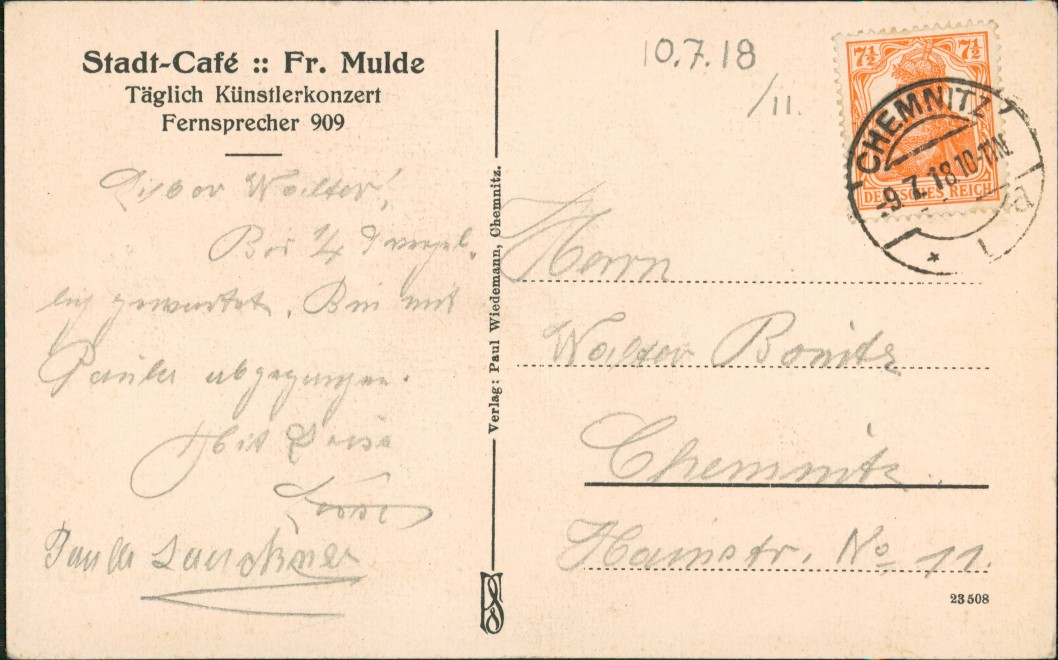 Stadt-Café :: Fr. Mulde
Täglich Künstlerkonzert
Fernsprecher 909
Lieber Walter!
Bis 1/4 9 vergeb-
lich gewartet. Bin mit
Paula abgegangen.
Mit Gruss
Paula
Verlag: Paul Wiedemann, Chemnitz.
10.7.18
/11.
7½ 7½
DEUTSCHES REICH
CHEMNITZ
-9.7.18 10-11N.
Herrn
Walter Bonitz
Chemnitz.
Hainstr. No 11.
23508